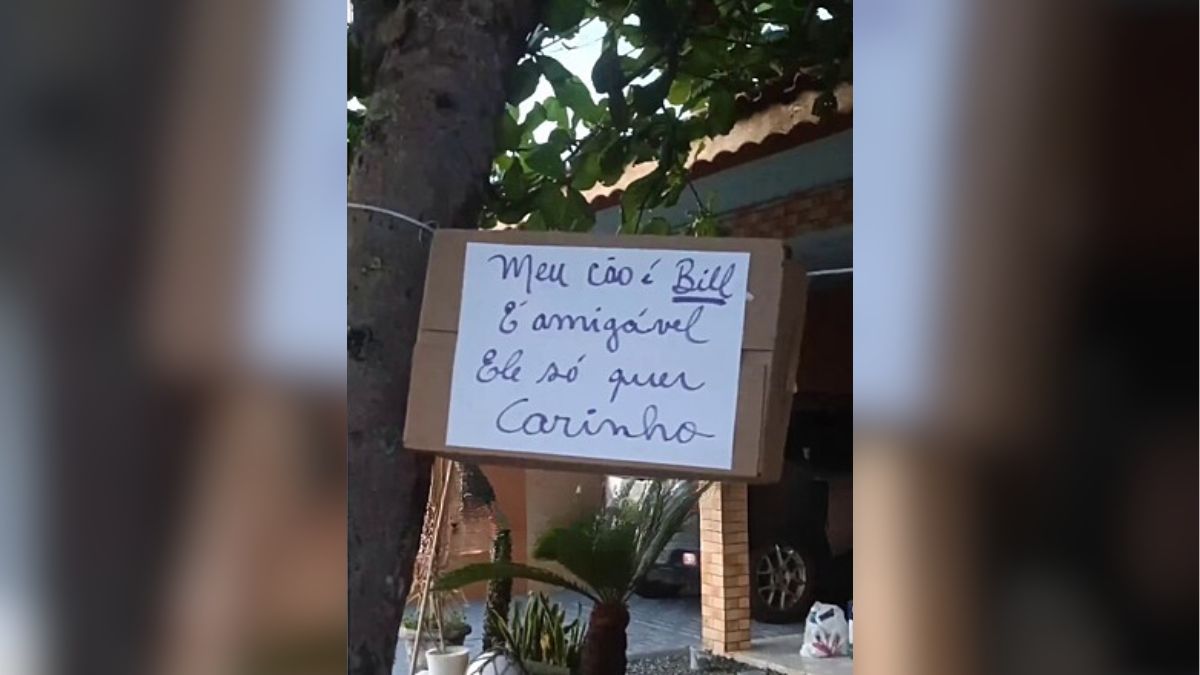 Meu cão é Bill
É amigável
Ele só quer
Carinho